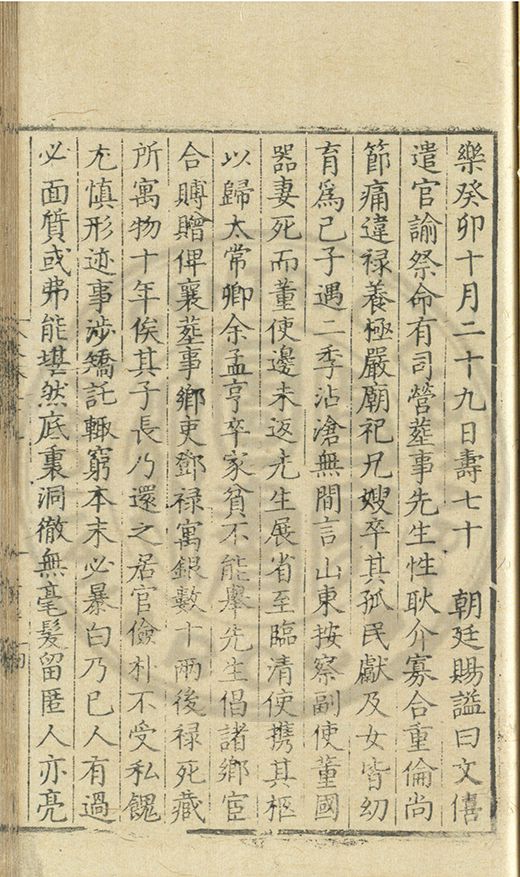 樂癸卯十月二十九日壽七十　朝廷賜謚曰文僖
遣官諭祭命有司營塟事先生性耿介寡合重倫尚
節痛違禄養極嚴廟祀兄嫂卒其孤民獻及女皆幼
育為己子遇二季沾滄無間言山東按察副使董國
器妻死而董使邊未返先生展省至臨清使携其柩
以歸太常卿余孟亨卒家貧不能舉先生倡諸鄉宦
合賻贈俾襄塟事鄉吏鄧禄寓銀數十兩後禄死藏
所寓物十年俟其子長乃還之居官儉朴不受私餽
尤慎形迹事涉矯託輙窮本末必暴白乃已人有過
必面質或弗能堪然底裏洞徹無毫髮留匿人亦亮